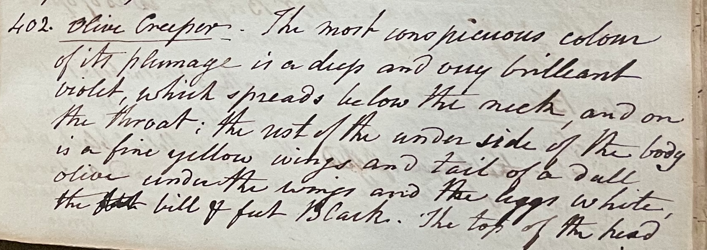 402. Olive Creepers. The most conspicuous colour
of its plumage is a deep and very brilliant
violet, which spreads below the neck, and on
the throat; the rest of the under side of the body
is a fine yellow wings and tail of a dull
olive under the wings and the legs white,
the bill & feet Black. The top of the head